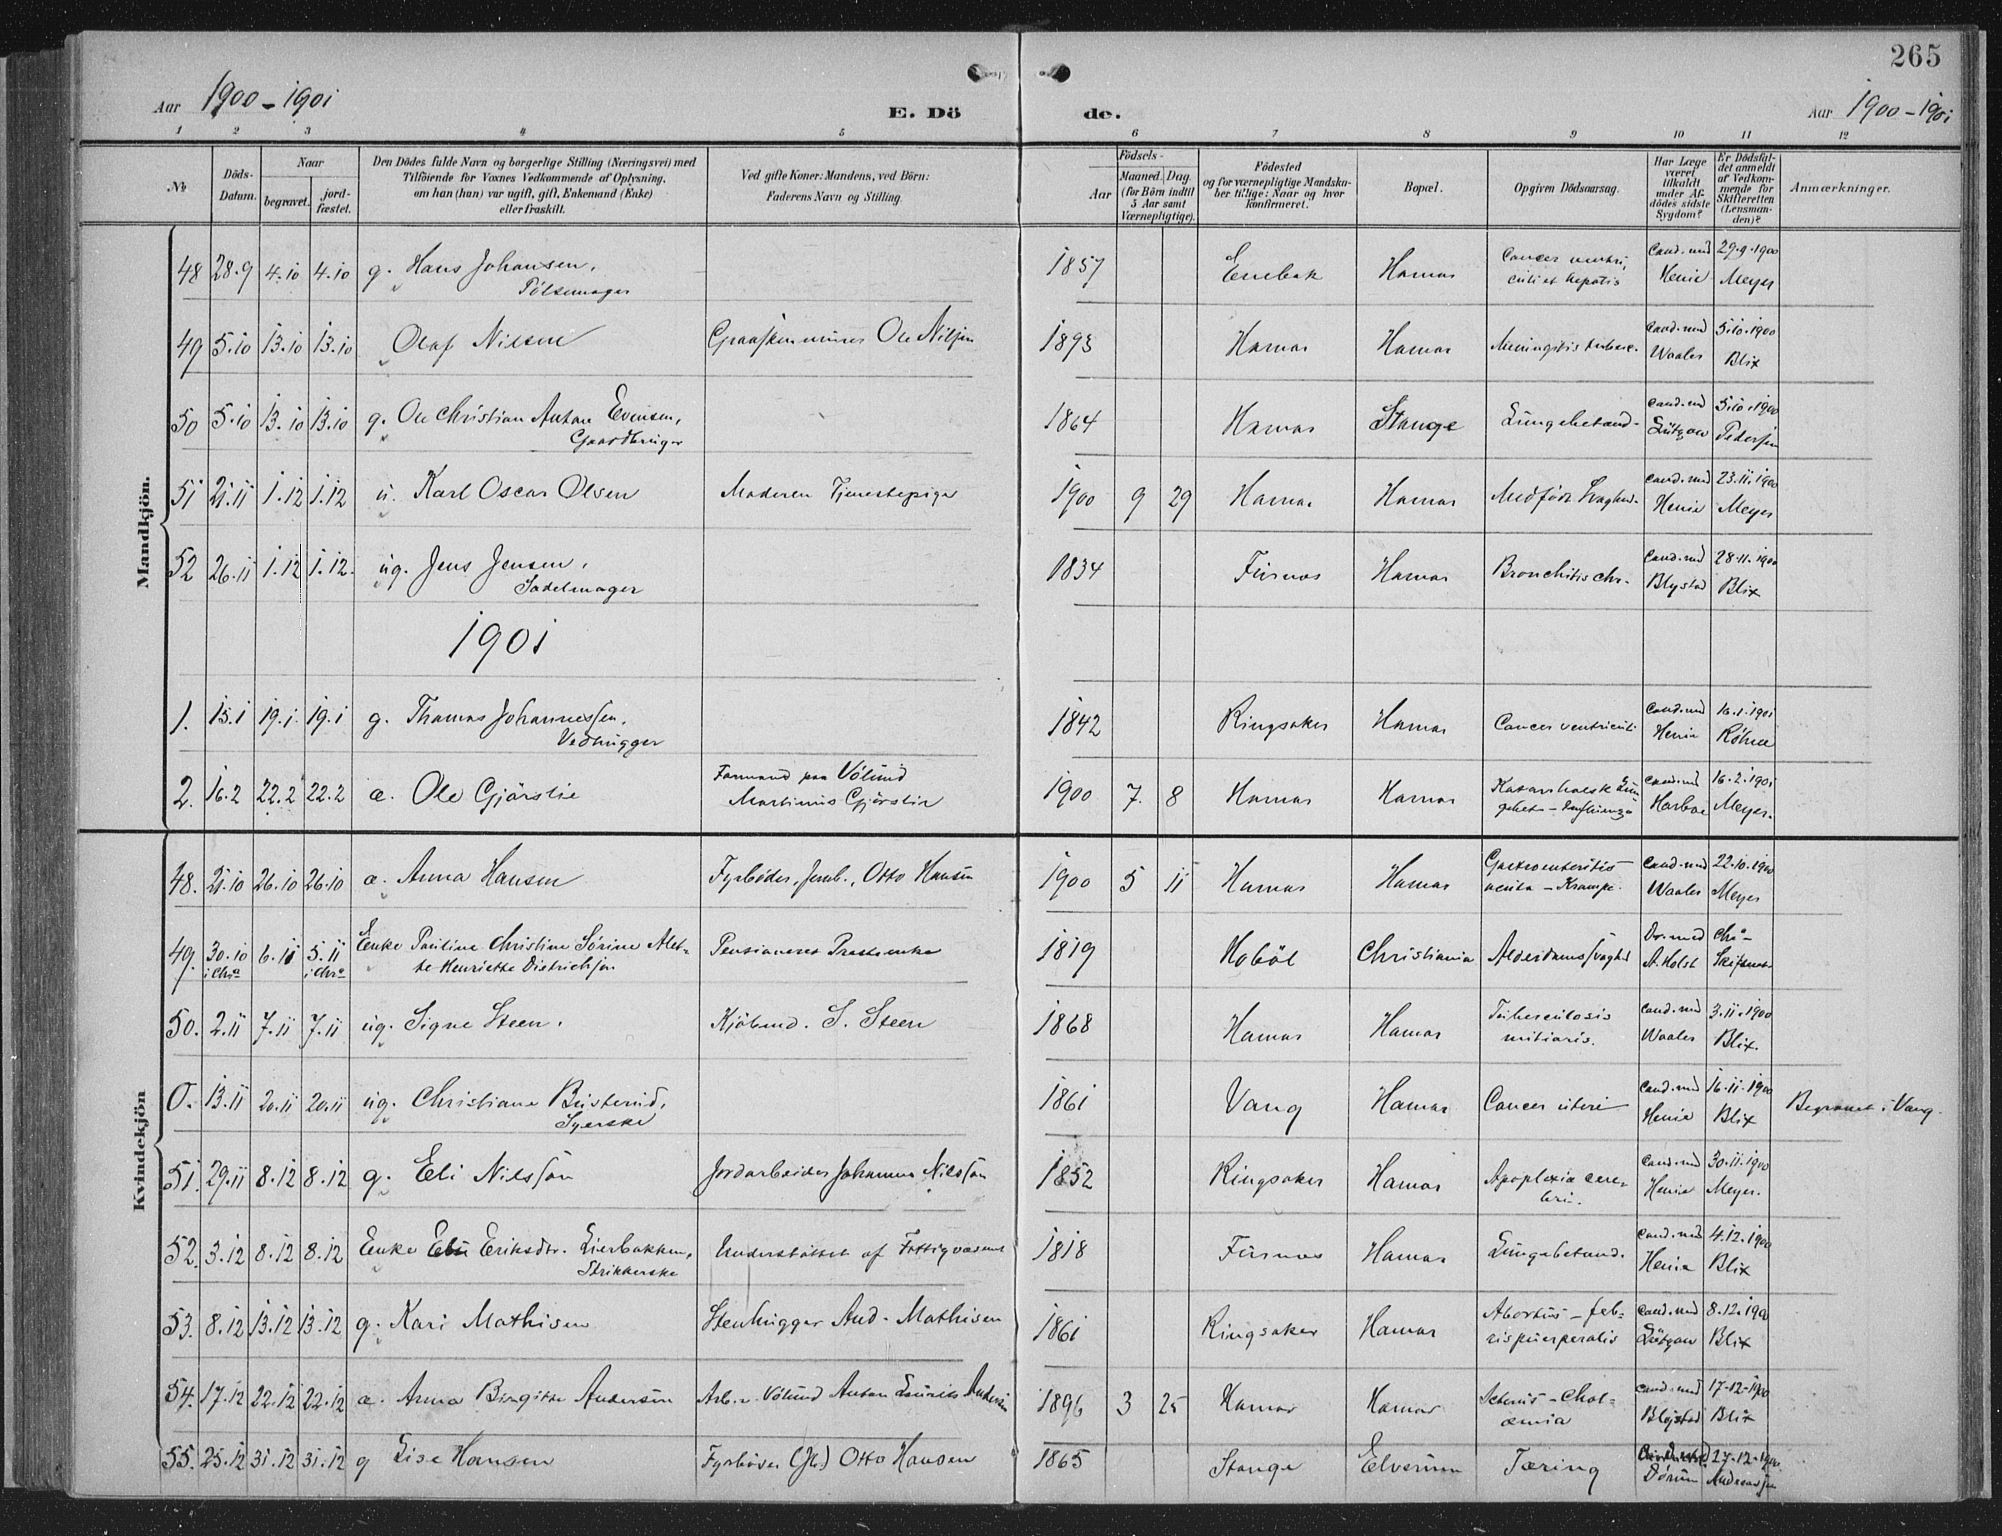 265
Aar 1900-1901
E. Dö de.
Aar 1900-1901
1 2 3 4 5 6 7 8 9 10 11 12
No
Döds-Datum.
Naar
begravet.
jord-fæstet.
Den Dödes fulde Navn og borgerlige Stilling (Næringsvei) med
Tilföiende for Voxnes Vedkommende af Oplysning,
om han (hun) var ugift, gift, Enkemand (Enke)
eller fraskilt.
Ved gifte Koner: Mandens, ved Börn:
Faderens Navn og Stilling.
Födsels-
Aar
Maaned.
Dag.
(for Börn indtil
5 Aar samt
Værnepligtige).
Födested
og for værnepligtige Mandska-
ber tillige: Naar og hvor
konfirmeret.
Bopæl.
Opgiven Dödsaarsag.
Har Læge
været
tilkaldt
under Af-
dödes sidste
Sygdom?
Er Dödsfal-
det anmeldt
af Vedkom-
mende for
Skifteretten
(Lensman-
den)?
Anmærkninger.
Mandkjön.
48 28.9 4.10 4.10 g. Hans Johansen, 1857 Enebak Hamar Cancer ventri- cand. med 29.9.1900
Pölsemager culi et hepatis Henie Meyer
49 5.10 13.10 13.10 Olaf Nilsen Ole Nilsen 1893 Hamar Hamar Meningitis tuberc. cand. med 5.10.1900
Waaler Blix
50 5.10 13.10 13.10 g. Ole Christian Anton Evensen, 1864 Hamar Stange Lungebetænd- cand. med 5.10.1900
Gaardbruger Lützow Pedersen
51 21.11 1.12 1.12 u. Karl Oscar Olsen Moderen Tjenestepige 1900 9 29 Hamar Hamar Medfödt Svaghed. cand. med 23.11.1900
Henie Meyer
52 26.11 1.12 1.12. ug. Jens Jensen, 1834 Furnæs Hamar Bronchitis chr. cand. med 28.11.1900
Sadelmager Blystad Blix
1901
1. 15.1 19.1. 19.1 g. Thomas Johannessen. 1842 Ringsaker Hamar Cancer ventriculi cand. med 16.1.1901
Vedhugger Henie
2. 16.2 22.2 22.2 æ. Ole Gjörslie Formand paa Völund 1900 7. 8 Hamar Hamar Katarrhalsk Lun cand. med 16.2.1901
Martinus Gjörslie gebet - Influenza Harboe Meyer.
Kvindekjön
48. 21.10 26.10 26.10 æ. Anna Hansen Fyrböder, Jernb., Otto Hansen 1900 5 11 Hamar Hamar Gastroenteritis cand. med 22.10.1900
acuta - Krampe. Waaler Meyer
49. 30.10 6.11 5.11 Enke Pauline Christine Sörine Alet- Pensioneret Præsteenke 1819 Hoböl Christiania Alderdomssvaghed Dr. med Chr.a
i Chr.a i Chr.a te Henriette Dietrichson A. Holst Skifteret
50. 2.11 7.11 7.11 ug. Signe Steen. Kjöbmd. S. Steen 1868 Hamar Hamar Tuberculosis cand. med 3.11.1900
miliaris. Waaler Blix.
0. 13.11 20.11 20.11 ug. Christiane Busterud, 1861 Vang Hamar Cancer uteri cand. med 16.11.1900 Begravet i Vang.
Syerske Henie Blix
51. 29.11 8.12 8.12 g. Eli Nilsson Jordarbeider Johannes Nilsson 1852 Ringsaker Hamar Apoplexia cere- cand. med 30.11.1900
bri. Henie Meyer.
52. 3.12 8.12 8.12 Enke Eli Eriksdtr. Lierbakken, Understöttet af Fattigvæsenet 1818 Furnæs Hamar Lungebetænd. cand. med 4.12.1900
Strikkerske Henie Blix
53. 8.12 13.12 13.12 g. Kari Mathisen Stenhugger And. Mathisen 1861 Ringsaker Hamar Abortus - feb- cand. med 8.12.1900
ris puerperalis Lützow Blix
54. 17.12 22.12 22.12 æ. Anna Birgitte Andersen Arb. v. Völund Anton Laurits Andersen 1896 3 25 Hamar Hamar Icterus - Chol- cand. med 17-12-1900
æmia Blystad Blix
55. 25.12 31.12 31.12 g Lise Hansen Fyrböder (Jb.) Otto Hansen 1865 Stange Elverum Tæring 27.12.1900
Andreassen